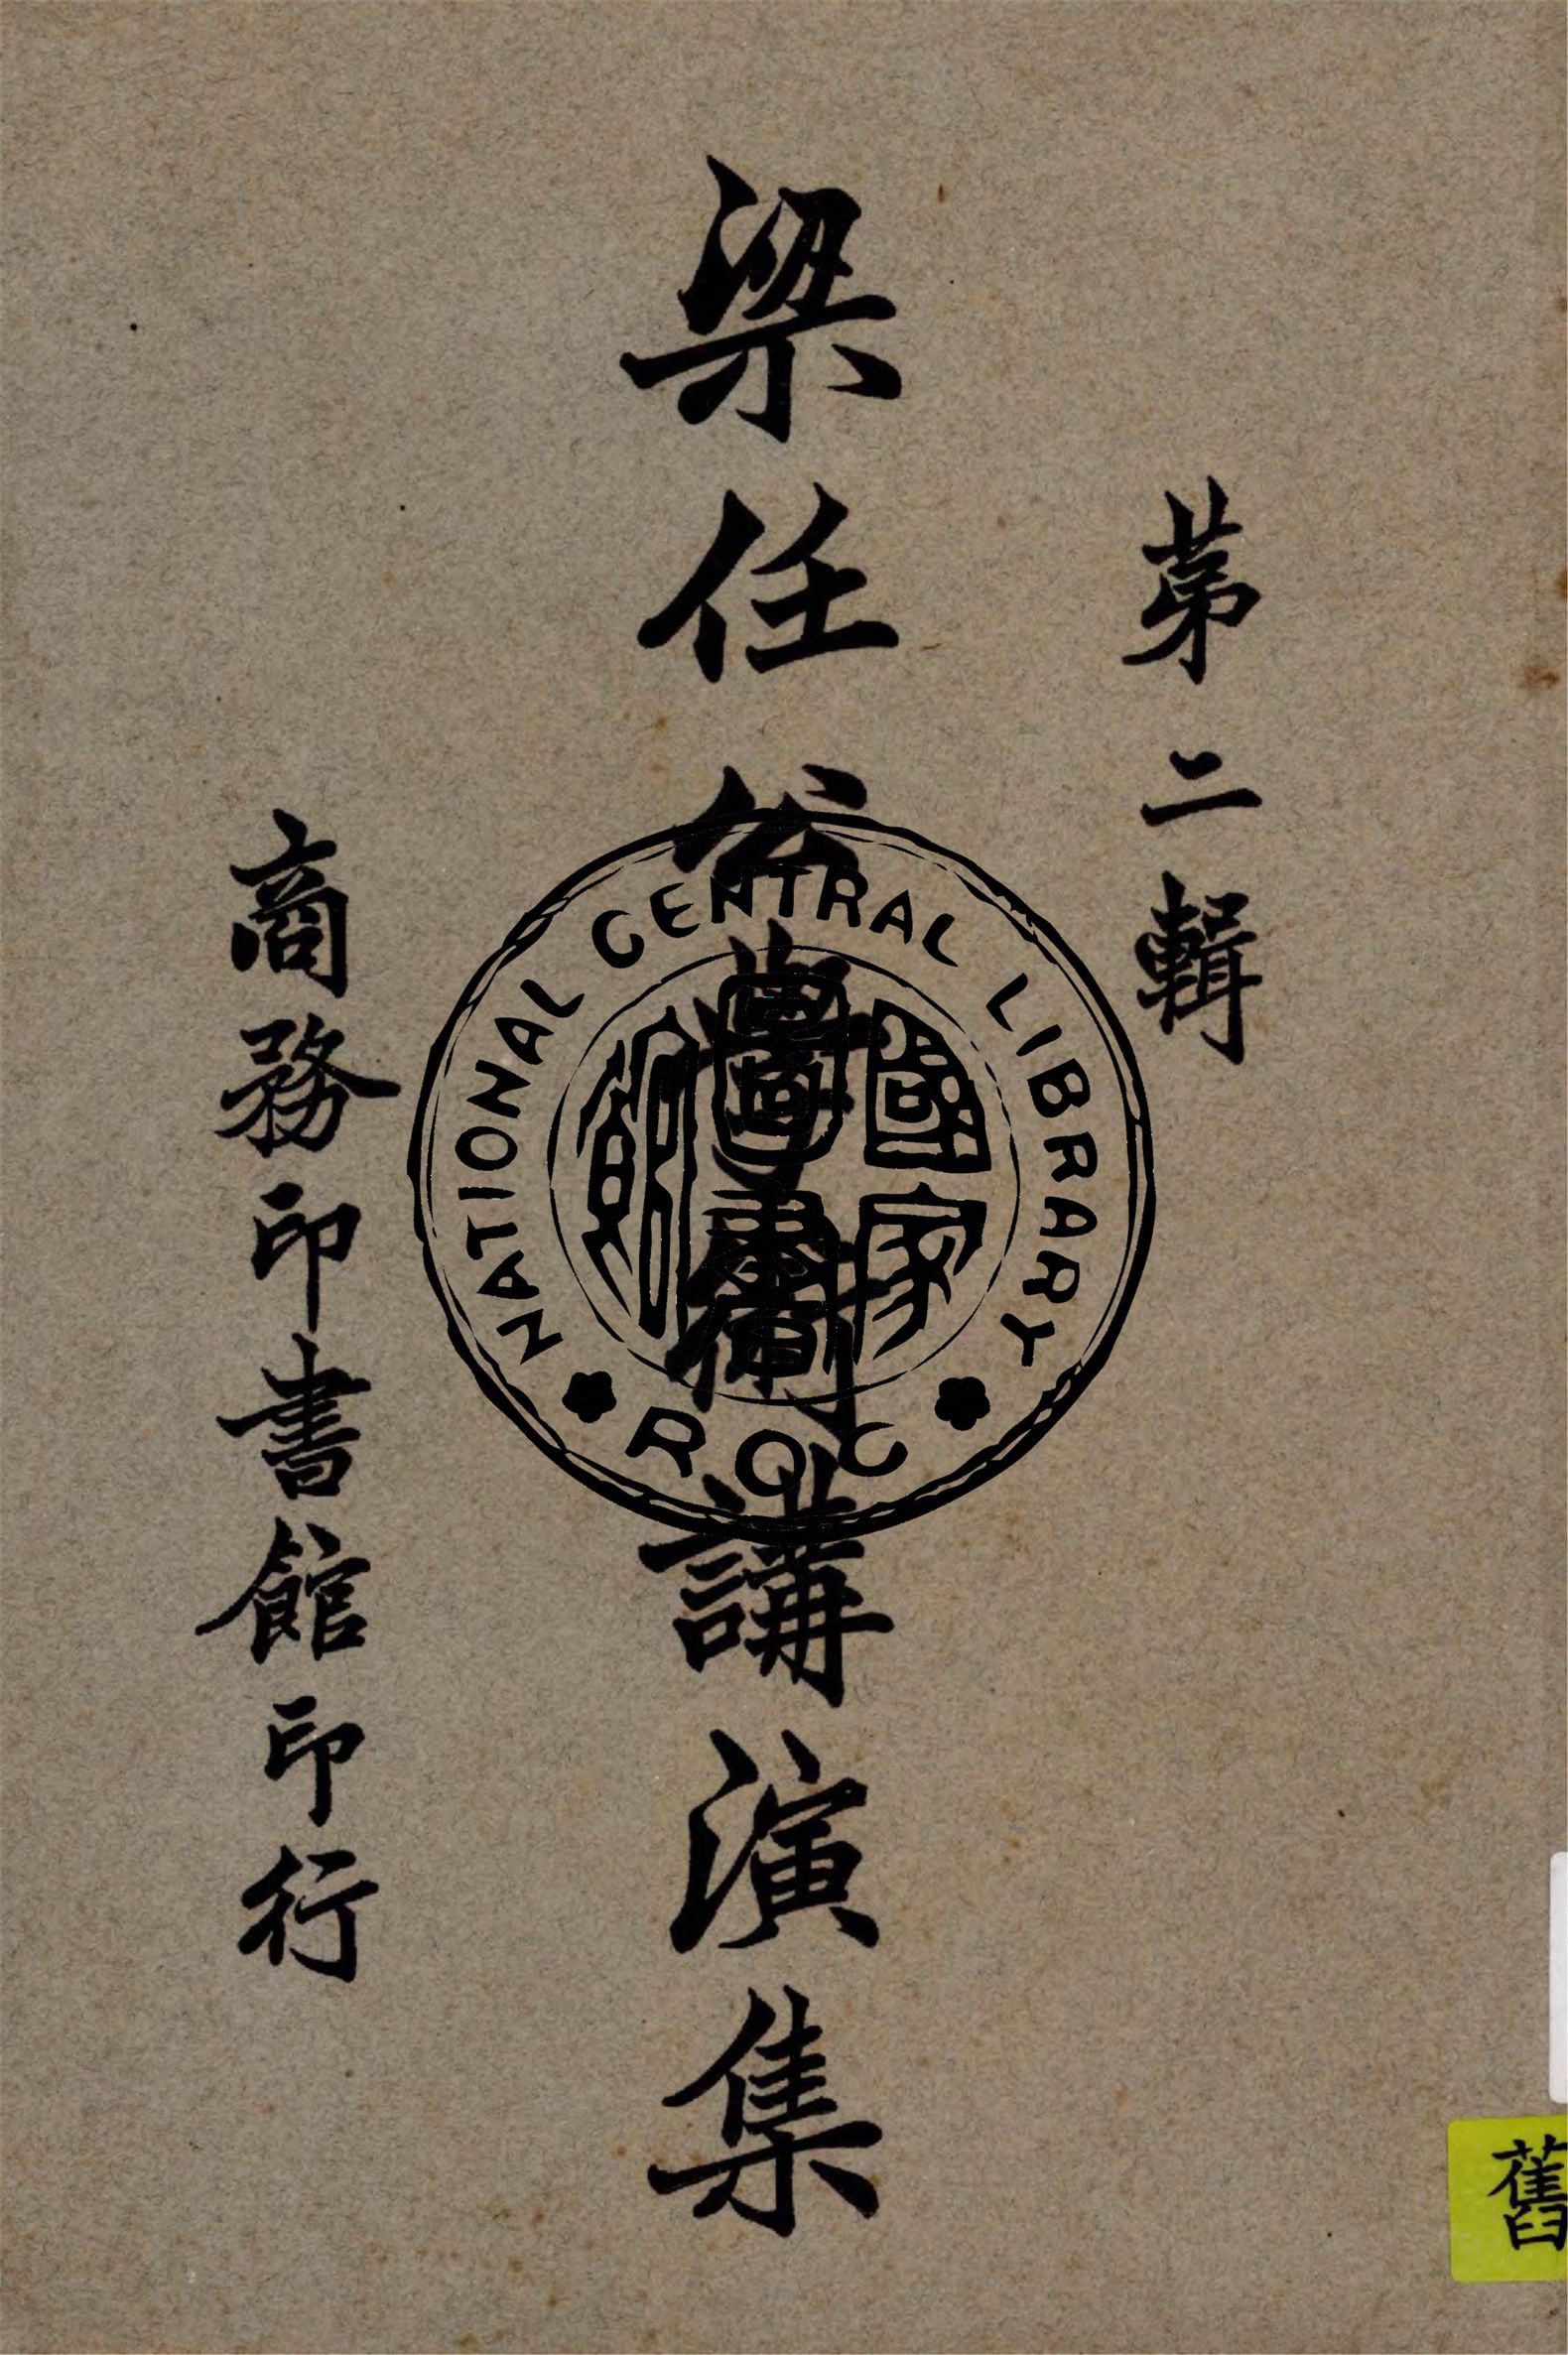 第二輯
梁任公學術講演集
商務印書館印行
NATIONAL CENTRAL LIBRARY
國家圖書館
ROC
舊